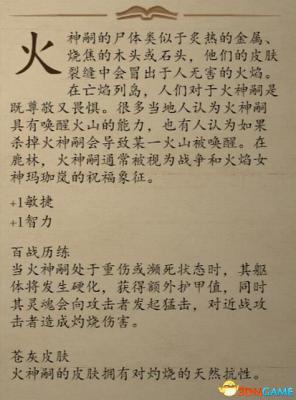 火神嗣的尸体类似于炙热的金属、
烧焦的木头或石头，他们的皮肤
裂缝中会冒出于人无害的火焰。
在亡焰列岛，人们对于火神嗣是
既尊敬又畏惧。很多当地人认为神嗣
具有唤醒火山的能力，也有人认为如果
杀掉火神嗣会导致某一火山被唤醒。在
鹿林，火神嗣通常被视为战争和火焰女
神玛珈岚的祝福象征。
+1敏捷
+1智力
百战历练
当火神嗣处于重伤或濒死状态时，其躯
体将发生硬化，获得额外护甲值，同时
其灵魂会向攻击者发起猛击，对近战攻
击者造成灼烧伤害。
苍灰皮肤
火神嗣的皮肤拥有对灼烧的天然抗性。
3DMGAME